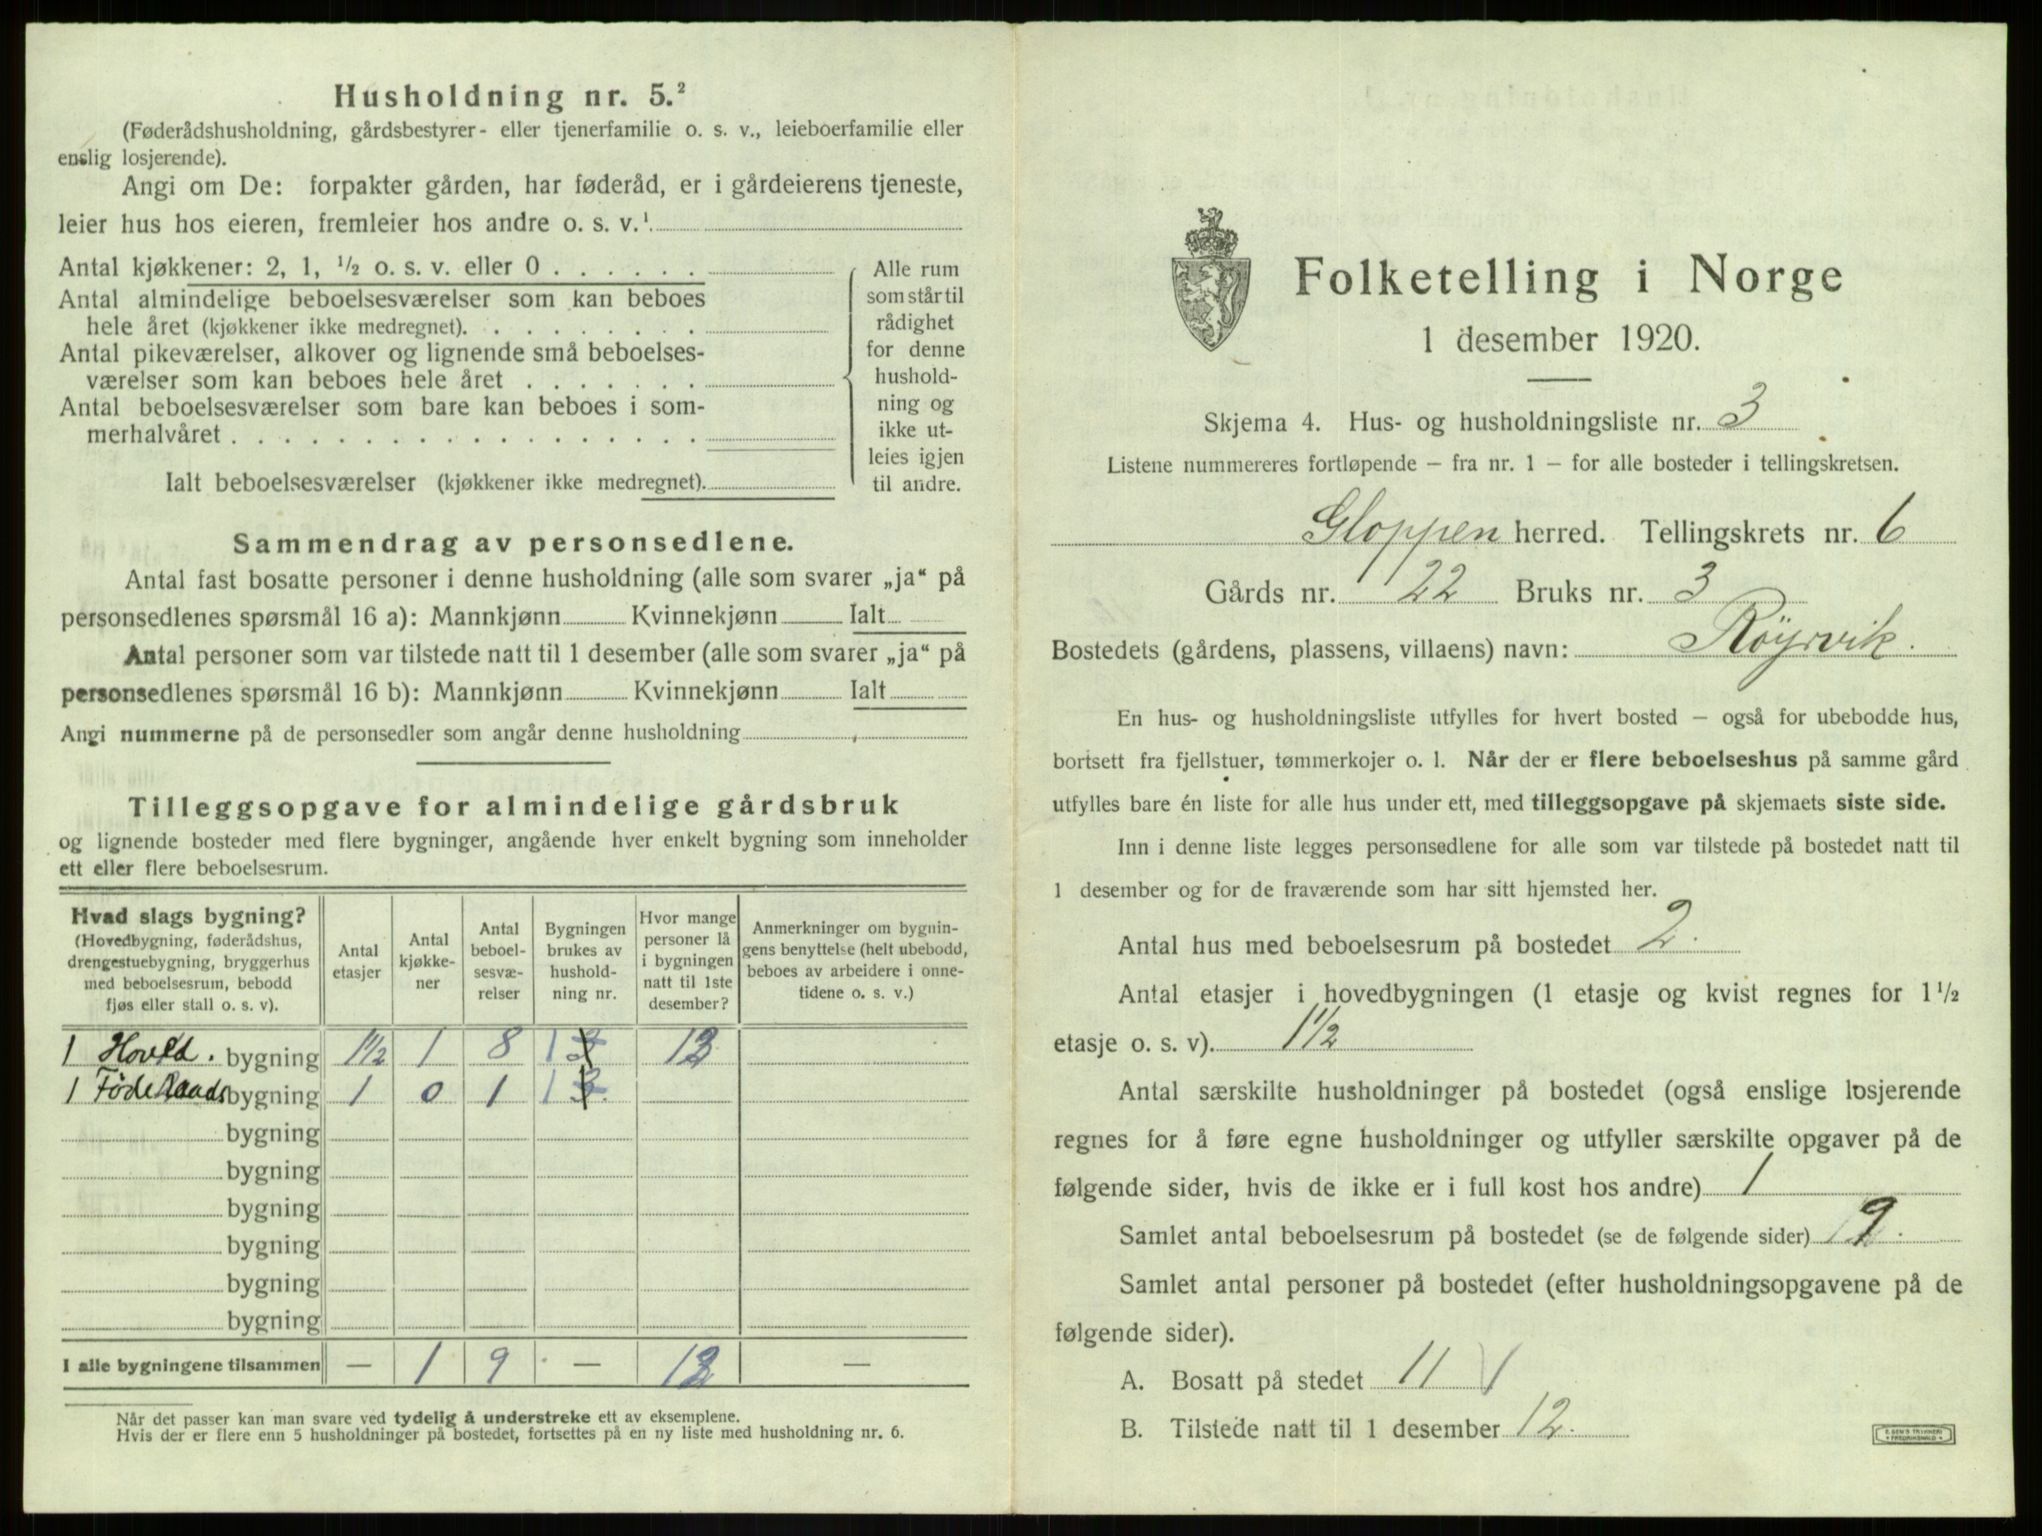 Husholdning nr. 5.²
(Føderådshusholdning, gårdsbestyrer- eller tjenerfamilie o. s. v., leieboerfamilie eller
enslig losjerende).
Angi om De: forpakter gården, har føderåd, er i gårdeierens tjeneste,
leier hus hos eieren, fremleier hos andre o. s. v.¹
Antal kjøkkener: 2, 1, ½ o. s. v. eller 0 . . . . . .
Antal almindelige beboelsesværelser som kan beboes
hele året (kjøkkener ikke medregnet). . . . . . . . .
Antal pikeværelser, alkover og lignende små beboelses-
værelser som kan beboes hele året . . . . . . .
Antal beboelsesværelser som bare kan beboes i som-
merhalvåret . . . . . . . . . . . . . . . . . .
Ialt beboelsesværelser (kjøkkener ikke medregnet).
Alle rum
som står til
rådighet
for denne
hushold-
ning og
ikke ut-
leies igjen
til andre.
Sammendrag av personsedlene.
Antal fast bosatte personer i denne husholdning (alle som svarer „ja“ på
personsedlenes spørsmål 16 a): Mannkjønn Kvinnekjønn Ialt
Antal personer som var tilstede natt til 1 desember (alle som svarer „ja“ på
personsedlenes spørsmål 16 b): Mannkjønn Kvinnekjønn Ialt
Angi nummerne på de personsedler som angår denne husholdning
Tilleggsopgave for almindelige gårdsbruk
og lignende bosteder med flere bygninger, angående hver enkelt bygning som inneholder
ett eller flere beboelsesrum.
Hvad slags bygning?
(Hovedbygning, føderådshus,
drengestuebygning, bryggerhus
med beboelsesrum, bebodd
fjøs eller stall o. s. v).
Antal
etasjer
Antal
kjøkke-
ner
Antal
beboel-
sesvæ-
relser
Bygningen
brukes av
hushold-
ning nr.
Hvor mange
personer lå
i bygningen
natt til 1ste
desember?
Anmerkninger om bygnin-
gens benyttelse (helt ubebodd,
beboes av arbeidere i onne-
tidene o. s. v.)
1 Hoved. bygning 1½ 1 8 1 12
1 Föderaads bygning 1 0 1 1
bygning
bygning
bygning
bygning
bygning
bygning
I alle bygningene tilsammen — 1 9 — 12 —
Når det passer kan man svare ved tydelig å understreke ett av eksemplene.
Hvis der er flere enn 5 husholdninger på bostedet, fortsettes på en ny liste med husholdning nr. 6.
Folketelling i Norge
1 desember 1920.
Skjema 4. Hus- og husholdningsliste nr. 3
Listene nummereres fortløpende – fra nr. 1 – for alle bosteder i tellingskretsen.
Gloppen herred. Tellingskrets nr. 6
Gårds nr. 22 Bruks nr. 3
Bostedets (gårdens, plassens, villaens) navn: Röyrvik.
En hus- og husholdningsliste utfylles for hvert bosted – også for ubebodde hus,
bortsett fra fjellstuer, tømmerkojer o. l. Når der er flere beboelseshus på samme gård
utfylles bare én liste for alle hus under ett, med tilleggsopgave på skjemaets siste side.
Inn i denne liste legges personsedlene for alle som var tilstede på bostedet natt til
1 desember og for de fraværende som har sitt hjemsted her.
Antal hus med beboelsesrum på bostedet 2.
Antal etasjer i hovedbygningen (1 etasje og kvist regnes for 1½
etasje o. s. v). 1½
Antal særskilte husholdninger på bostedet (også enslige losjerende
regnes for å føre egne husholdninger og utfyller særskilte opgaver på de
følgende sider, hvis de ikke er i full kost hos andre) 1
Samlet antal beboelsesrum på bostedet (se de følgende sider) 9.
Samlet antal personer på bostedet (efter husholdningsopgavene på de
følgende sider).
A. Bosatt på stedet 11
B. Tilstede natt til 1 desember 12.